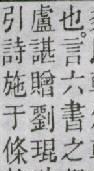 也。言六書之
盧諶贈劉琨
引詩施于條